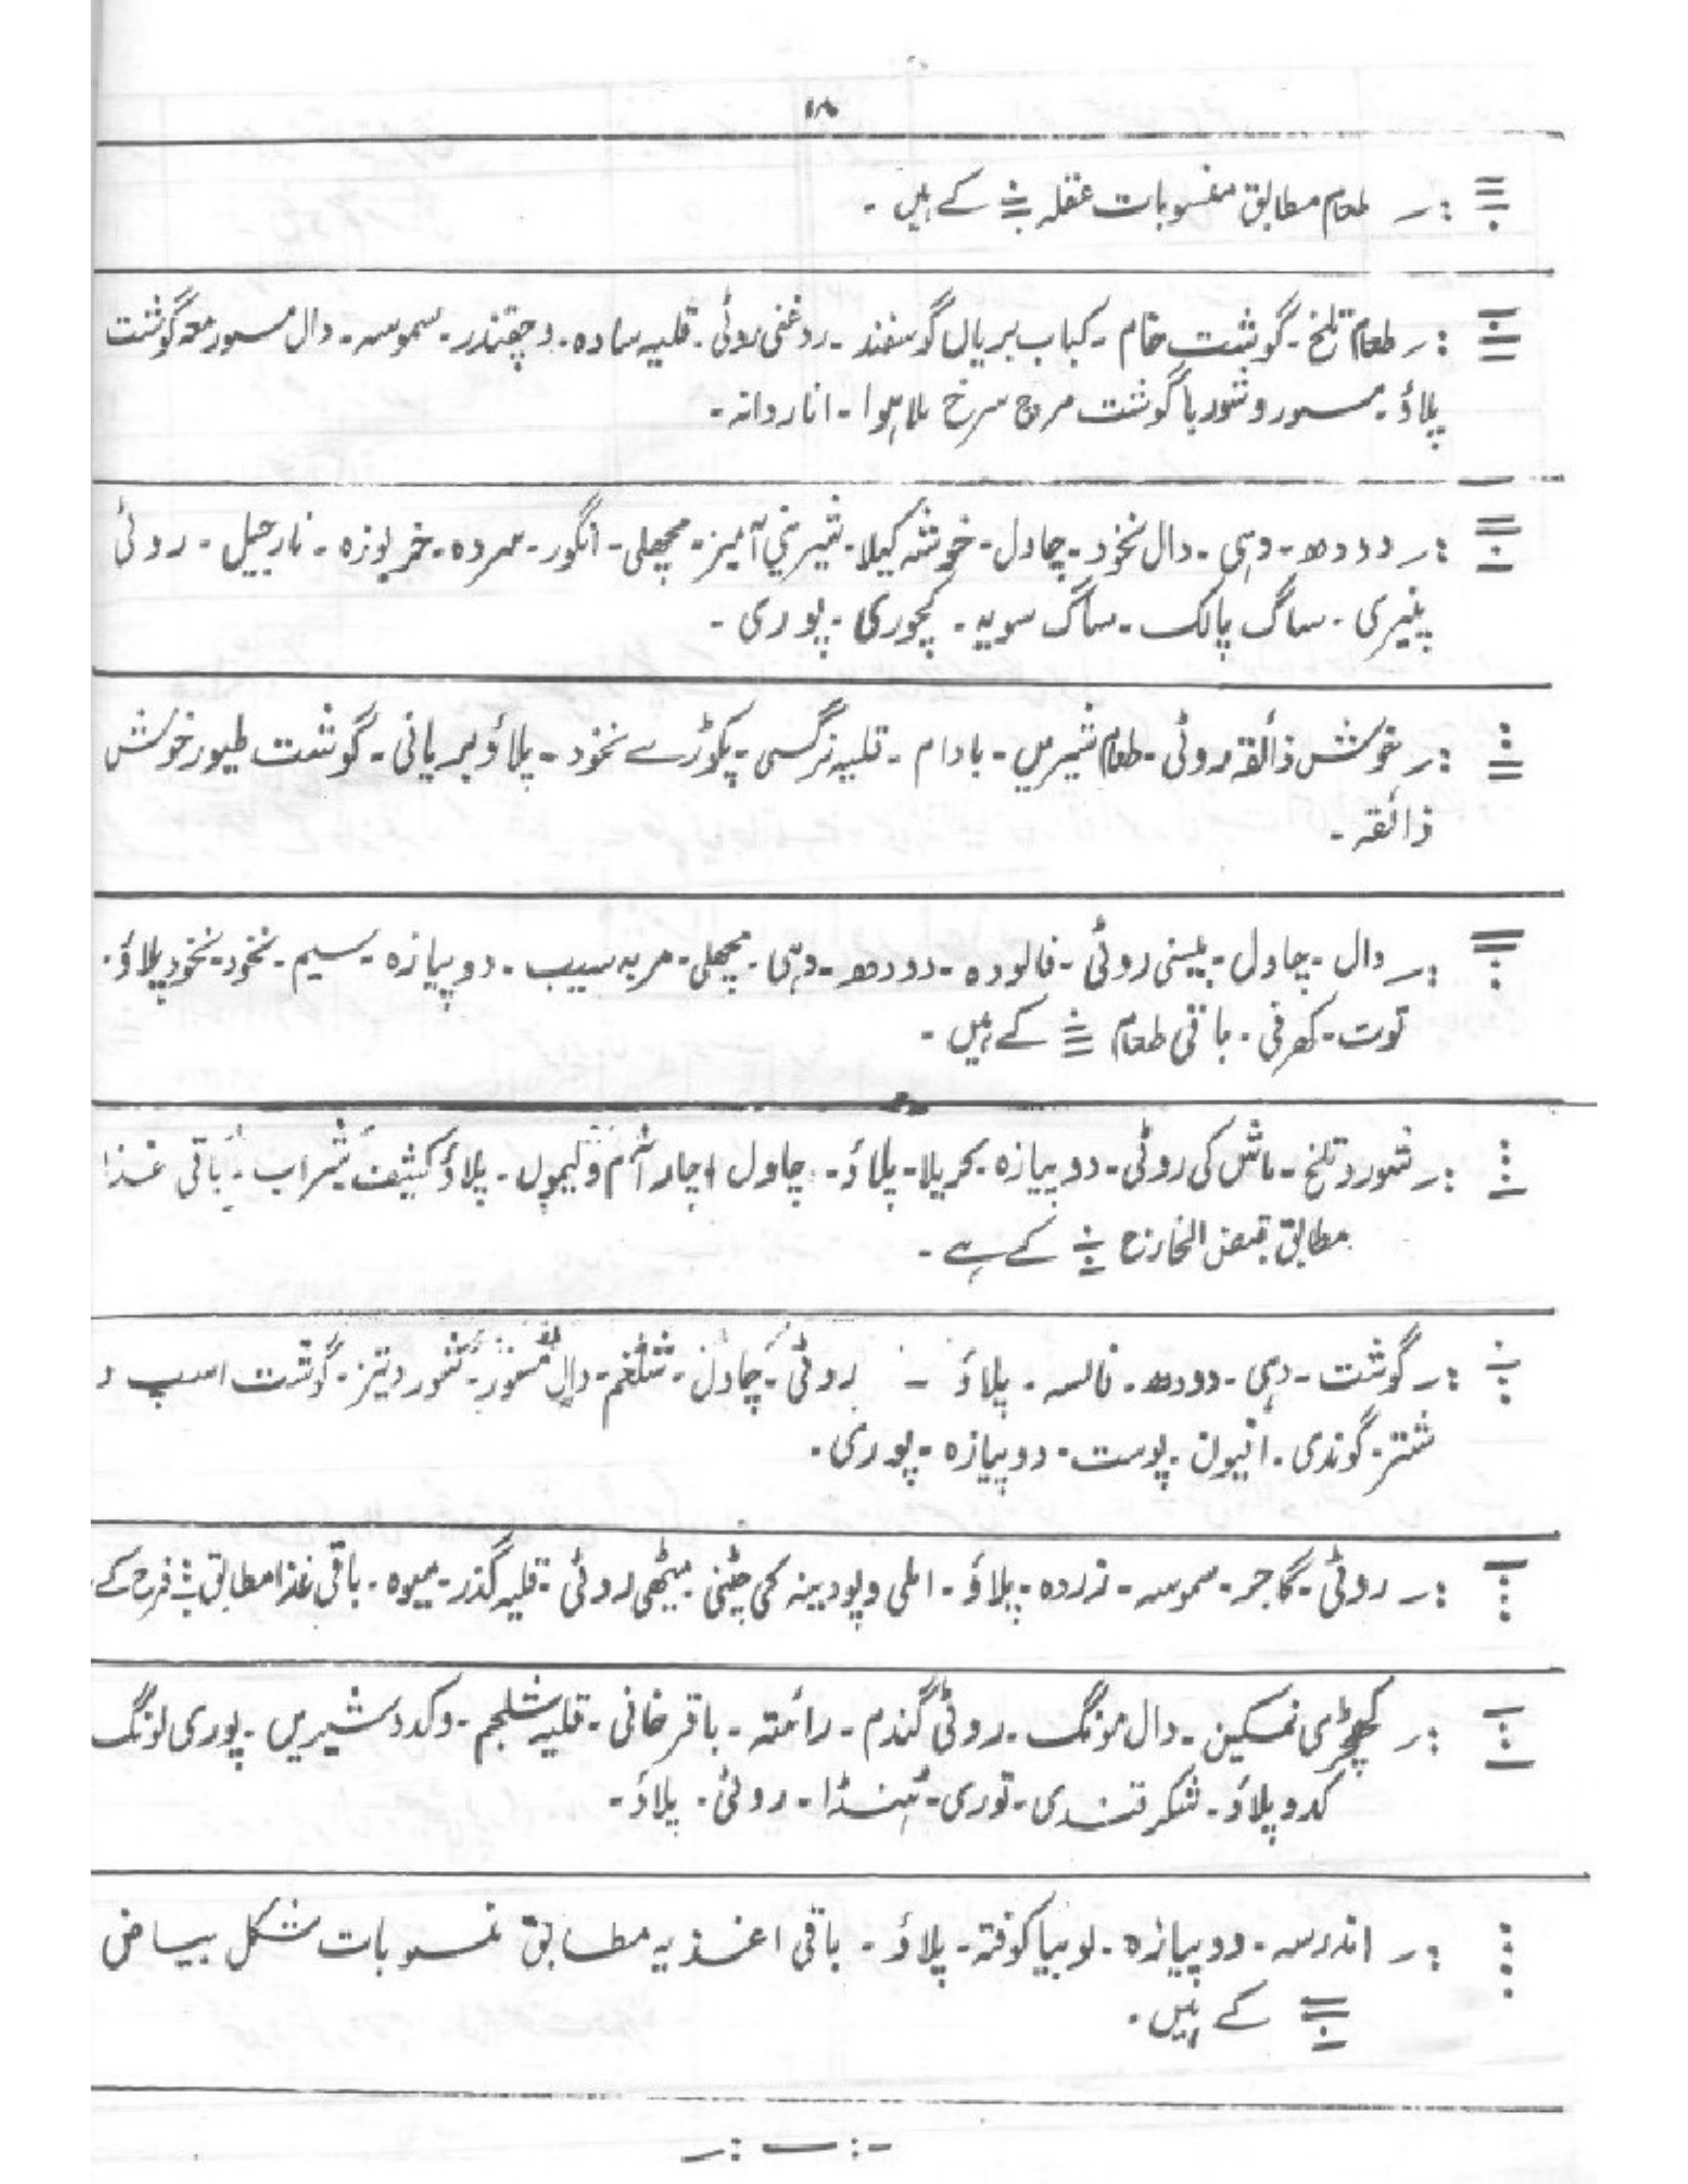 ۱۸
:۔ طعام مطابق منسوبات عقلہ کے ہیں ۔
:۔ طعام تلخ ۔ گوشت خام ۔ کباب بریاں گوسفند ۔ روغنی روٹی ۔ قلیہ سادہ ۔ و چقندر ۔ سموسہ ۔ دال مسور معہ گوشت
پلاؤ ۔ مسور و شوربا گوشت مرچ سرخ ملا ہوا ۔ انار دانہ ۔
:۔ دودھ ۔ دہی ۔ دال نخود ۔ چاول ۔ خوشہ کیلا ۔ شیرینی آمیز ۔ مچھلی ۔ انگور ۔ سردہ ۔ خربوزہ ۔ نارجیل ۔ روٹی
پنیری ۔ ساگ پالک ۔ ساگ سویہ ۔ کچوری ۔ پوری ۔
:۔ خوش ذائقہ روٹی ۔ طعام شیریں ۔ بادام ۔ قلیہ نرگسی ۔ پکوڑے نخود ۔ پلاؤ بریانی ۔ گوشت طیور خوش
ذائقہ ۔
:۔ دال ۔ چاول ۔ بیسنی روٹی ۔ فالودہ ۔ دودھ ۔ دہی ۔ مچھلی ۔ مربہ سیب ۔ دوپیازہ ۔ سیم ۔ نخود ۔ نخود پلاؤ ۔
توت ۔ کھرفی ۔ باقی طعام کے ہیں ۔
:۔ شور و تلخ ۔ ماش کی روٹی ۔ دوپیازہ ۔ کریلا ۔ پلاؤ ۔ چاول اچار آم و لیموں ۔ پلاؤ کثیف شراب ۔ باقی غذا
مطابق قبض الخارج کے ہے ۔
:۔ گوشت ۔ دہی ۔ دودھ ۔ فالسہ ۔ پلاؤ ۔ روٹی ۔ چاول ۔ شلغم ۔ دال مسور ۔ شور و تیز ۔ گوشت اسپ و
شتر ۔ گوندی ۔ افیون ۔ پوست ۔ دوپیازہ ۔ پوری ۔
:۔ روٹی ۔ گاجر ۔ سموسہ ۔ زردہ ۔ پلاؤ ۔ املی و پودینہ کی چٹنی میٹھی روٹی ۔ قلیہ گذر ۔ میوہ ۔ باقی غذا مطابق فرح کے
:۔ کھچڑی نمکین ۔ دال مونگ ۔ روٹی گندم ۔ رائتہ ۔ باقر خانی ۔ قلیہ شلجم ۔ و کدو شیریں ۔ پوری لونگ
کدو پلاؤ ۔ شکر قندی ۔ توری ۔ ٹنڈا ۔ روٹی ۔ پلاؤ ۔
:۔ اندرسہ ۔ دوپیازہ ۔ لوبیا کوفتہ ۔ پلاؤ ۔ باقی اغذیہ مطابق منسوبات شکل بیاض
کے ہیں ۔